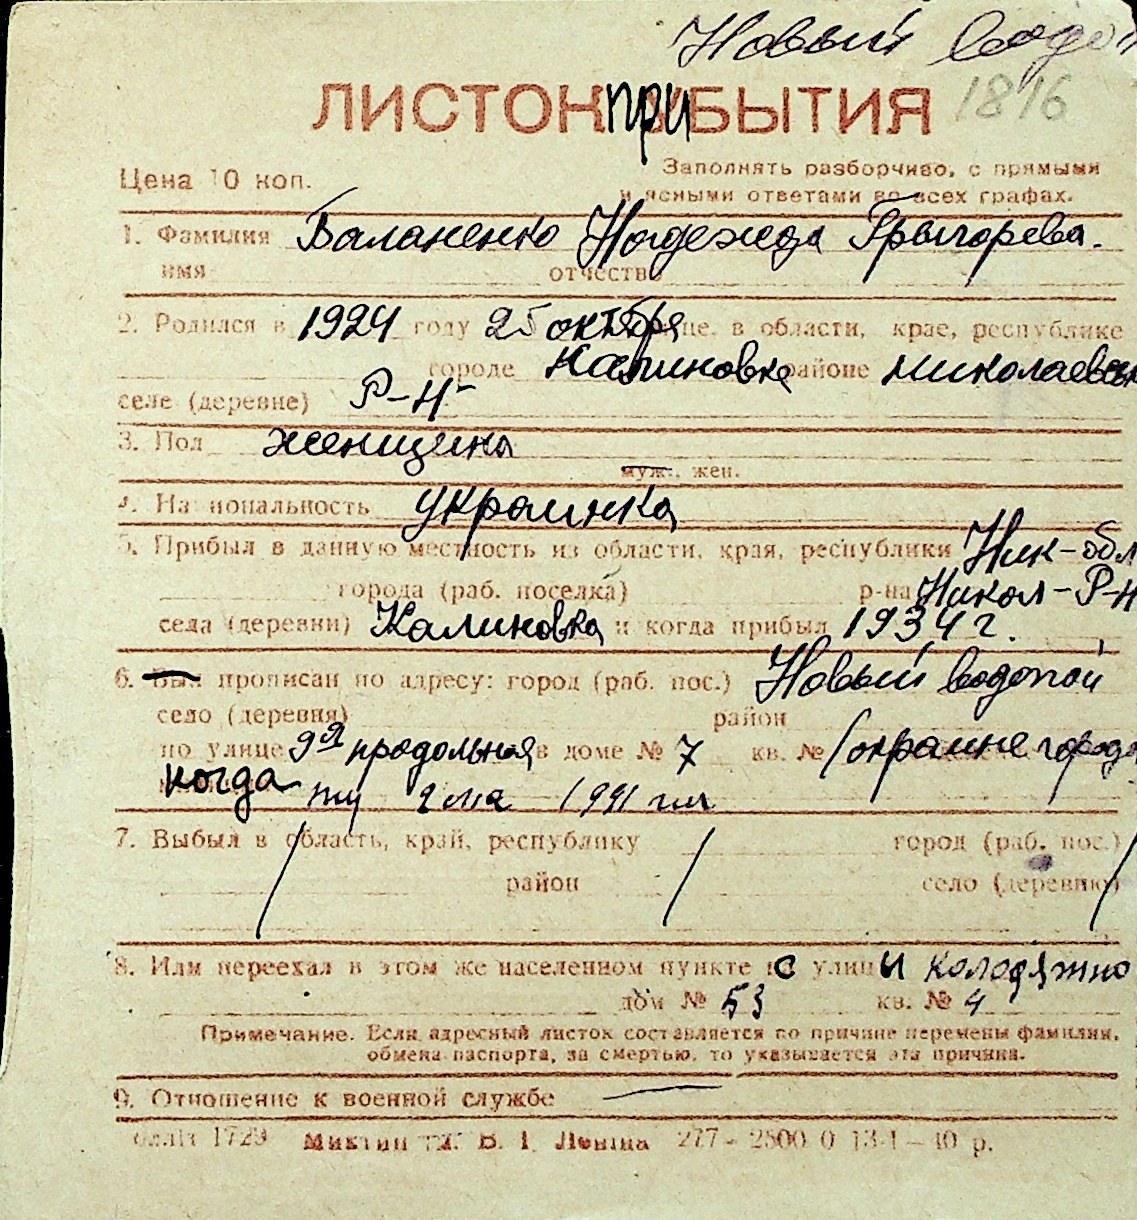 Новый водоп
ЛИСТОК ПРИБЫТИЯ 1816
Цена 10 коп.
Заполнять разборчиво, с прямыми
и ясными ответами во всех графах.
1. Фамилия Баланенко Надежда Грыгорева.
имя отчество
2. Родился в 1924 году 25 октября це, в области, крае, республике
городе Калиновка районе Николаевск
селе (деревне) Р-Н
3. Пол женщина
муж., жен.
4. Национальность украинка
5. Прибыл в данную местность из области, края, республики Ник-обл
города (раб. поселка) р-на Никол-Р-Н
села (деревни) Калиновка и когда прибыл 1934 г.
6. Был прописан по адресу: город (раб. пос.) Новый водопой
село (деревня) район
по улице 9я продольная в доме № 7 кв. № (окраине города
когда 2 мая 1941
7. Выбыл в область, край, республику город (раб. пос.)
район село (деревню)
8. Или переехал в этом же населенном пункте с улицы колодяжно
дом № 53 кв. № 4
Примечание. Если адресный листок составляется по причине перемены фамилии,
обмена паспорта, за смертью, то указывается эта причина.
9. Отношение к военной службе —
1729 В. І. Леніна 277 - 2500 0 13-1-40 р.